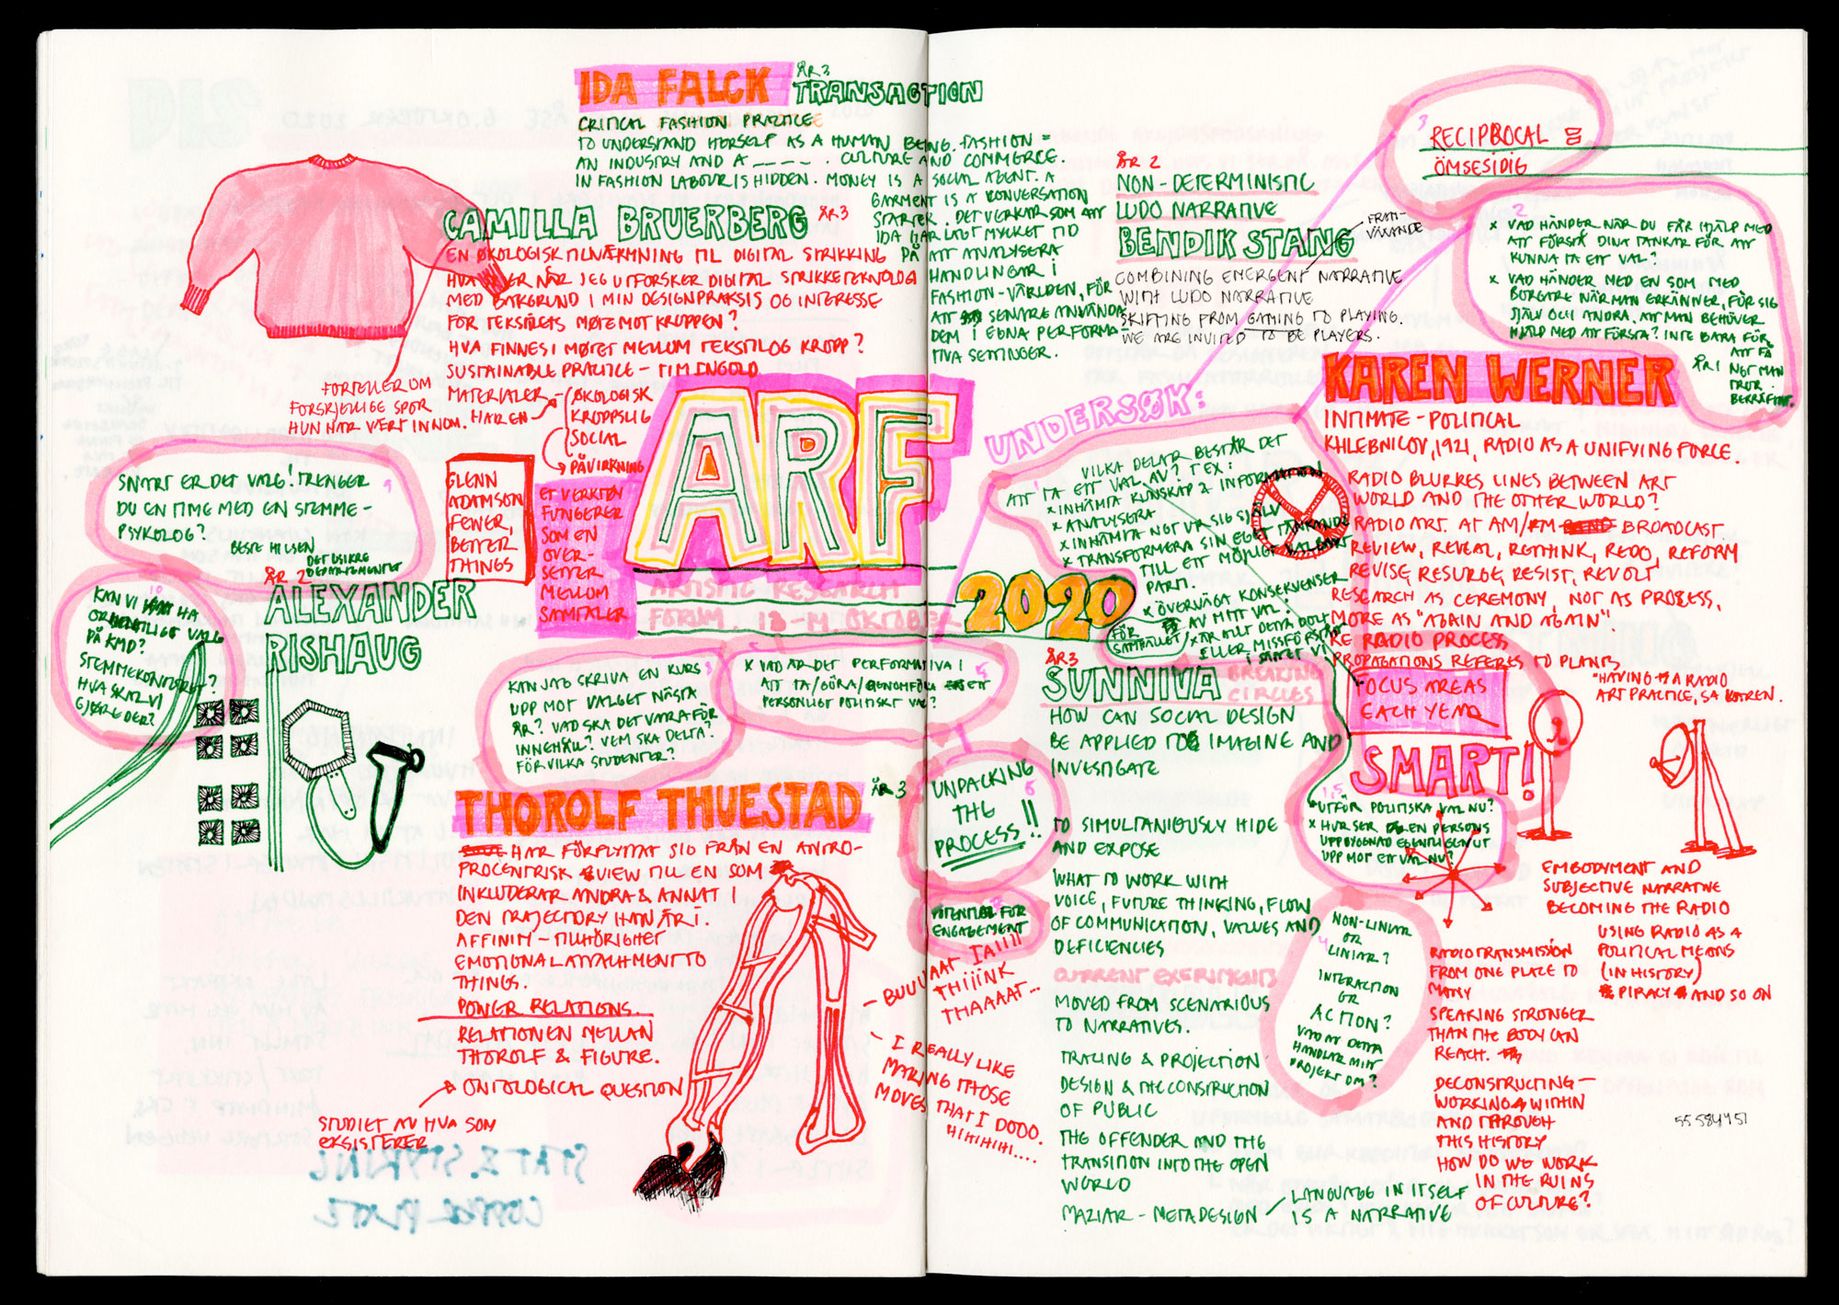 IDA FALCK ÅR 3 TRANSACTION
CRITICAL FASHION PRACTICE
TO UNDERSTAND HERSELF AS A HUMAN BEING. FASHION =
AN INDUSTRY AND A _ _ _ _ _ . CULTURE AND COMMERCE.
IN FASHION LABOUR IS HIDDEN. MONEY IS A SOCIAL AGENT. A
GARMENT IS A KONVERSATION
STARTER. DET VERKAR SOM ATT
IDA HAR LAGT MYCKET TID
PÅ ATT ANALYSERA
HANDLINGAR I
FASHION-VÄRLDEN, FÖR
ATT SENARE ANVÄNDA
DEM I EGNA PERFORMA-
TIVA SETTINGER.
CAMILLA BRUERBERG ÅR 3
EN ØKOLOGISK TILNÆRMNING TIL DIGITAL STRIKKING
HVA SKJER NÅR JEG UTFORSKER DIGITAL STRIKKETEKNOLOGI
MED BAKGRUND I MIN DESIGNPRAKSIS OG INTERESSE
FOR TEKSTILETS MØTE MOT KROPPEN?
HVA FINNES I MØTET MELLOM TEKSTIL OG KROPP?
SUSTAINABLE PRACTICE - TIM INGOLD
MATERIALER - ØKOLOGISK
HAR EN KROPPSLIG
SOCIAL
PÅVIRKNING
FORTELLER OM
FORSKJELLIGE SPOR
HUN HAR VÆRT INNOM.
GLENN
ADAMSON
FEWER,
BETTER
THINGS
ET VERKTEN
FUNGERER
SOM EN
OVER-
SETTER
MELLOM
SAMTALER
ARF
ARTISTIC RESEARCH
FORUM. 13-14. OKTOBER
2020
9
SNART ER DET VALG! TRENGER
DU EN TIME MED EN STEMME-
PSYKOLOG?
BESTE HILSEN
DET USIKRE
DEPARTEMENTET
10
KAN VI HA
ORDENTLIGT VALG
PÅ KMD?
STEMMEKONTORET?
HVA SKAL VI
GJØRE DER?
ÅR 2
ALEXANDER
RISHAUG
8
KAN JAG SKRIVA EN KURS
UPP MOT VALGET NÄSTA
ÅR? VAD SKA DET VARA FÖR
INNEHÅLL? VEM SKA DELTA?
FÖR VILKA STUDENTER?
X VAD ÄR DET PERFORMATIVA I
ATT TA/GÖRA/GENOMFÖRA ETT
PERSONLIGT POLITISKT VAL?
THOROLF THUESTAD ÅR 3
HAR FÖRFLYTTAT SIG FRÅN EN ANTRO-
PROCENTRISK VIEW TILL EN SOM
INKLUDERAR ANDRA & ANNAT I
DEN TRAJECTORY HAN ÄR I.
AFFINITY - TILLHÖRIGHET
EMOTIONAL ATTACHMENT TO
THINGS.
POWER RELATIONS.
RELATIONEN MELLAN
THOROLF & FIGURE.
ONTOLOGICAL QUESTION
STUDIET AV HVA SOM
EKSISTERER
BUUUAAT IAIIII
THIIINK
THAAAAT...
I REALLY LIKE
MAKING THOSE
MOVES THAT I DODO.
HIHIHIHI....
UNPACKING
6
THE
PROCESS!!
POTENTIAL FOR
ENGAGEMENT
ÅR 2
NON-DETERMINISTIC
LUDO NARRATIVE
BENDIK STANG
FRAM-
VÄXANDE
COMBINING EMERGENT NARRATIVE
WITH LUDO NARRATIVE
SKIFTING FROM GAMING TO PLAYING.
WE ARE INVITED TO BE PLAYERS.
3
RECIPROCAL =
ÖMSESIDIG
2
X VAD HÄNDER NÄR DU FÅR HJÄLP MED
ATT FÖRSTÅ DINA TANKAR FÖR ATT
KUNNA TA ETT VAL?
X VAD HÄNDER MED EN SOM MED
BORGARE NÄR MAN ERKÄNNER, FÖR SIG
SJÄLV OCH ANDRA, ATT MAN BEHÖVER
HJÄLP MED ATT FÖRSTÅ? INTE BARA FÖR
ATT FÅ
NGT MAN
TROR
BEKRÄFTAT.
KAREN WERNER ÅR 1
INTIMATE - POLITICAL
KHLEBNICOV, 1921, RADIO AS A UNIFYING FORCE.
RADIO BLURRES LINES BETWEEN ART
WORLD AND THE OTHER WORLD?
RADIO ART. AT AM/FM BROADCAST.
REVIEW, REVEAL, RETHINK, REDO, REFORM
REVISE, RESURGE, RESIST, REVOLT
RESEARCH AS CEREMONY, NOT AS PROCESS,
MORE AS "AGAIN AND AGAIN"
RE RADIO PROCESS
PROPAGATIONS REFERES TO PLANTS
"HAVING A RADIO
ART PRACTICE, SA KAREN.
FOCUS AREAS
EACH YEAR
SMART!
UNDERSØK:
VILKA DELAR BESTÅR DET
ATT TA ETT VAL AV? T.EX:
X INHÄMTA KUNSKAP & INFORMATION
X ANALYSERA
X INHÄMTA NGT VAR SIG SJÄLV
X TRANSFORMERA SIN EGET TÄNKANDE
TILL ETT MÖJLIGT VALBART
PARTI.
X ÖVERVÄGA KONSEKVENSER
AV MITT VAL?
FÖR
SAMHÄLLET
X ÄR ALLT DETTA DOLT
ELLER MISSFÖRSTÅTT
I SAMTAL VI
ÅR 3
SUNNIVA BREAKING
CIRCLES
HOW CAN SOCIAL DESIGN
BE APPLIED TO IMAGINE AND
INVESTIGATE
TO SIMULTANIOUSLY HIDE
AND EXPOSE
WHAT TO WORK WITH
VOICE, FUTURE THINKING, FLOW
OF COMMUNICATION, VALUES AND
DEFICIENCIES
CURRENT EXPERIMENTS
MOVED FROM SCENARIOUS
TO NARRATIVES.
TRACING & PROJECTION
DESIGN & THE CONSTRUCTION
OF PUBLIC
THE OFFENDER AND THE
TRANSITION INTO THE OPEN
WORLD
MAZIAR - METADESIGN / LANGUAGE IN ITSELF
IS A NARRATIVE
1,5
UTFÖR POLITISKA VAL NU?
X HUR SER EN PERSONS
UPPBYGNAD EGENTLIGEN UT
UPP MOT ETT VAL NU?
4
NON-LINEAR
OR
LINIAR?
INTERACTION
OR
ACTION?
VAD ÄR DETTA
HANDLAR MITT
PROJEKT OM?
EMBODYMENT AND
SUBJECTIVE NARRATIVE
BECOMING THE RADIO
USING RADIO AS A
POLITICAL MEANS
(IN HISTORY)
PIRACY AND SO ON
RADIO TRANSMISSION
FROM ONE PLACE TO
MANY
SPEAKING STRONGER
THAN THE BODY CAN
REACH.
DECONSTRUCTING -
WORKING WITHIN
AND THROUGH
THIS HISTORY
HOW DO WE WORK
IN THE RUINS
OF CULTURE?
55584451